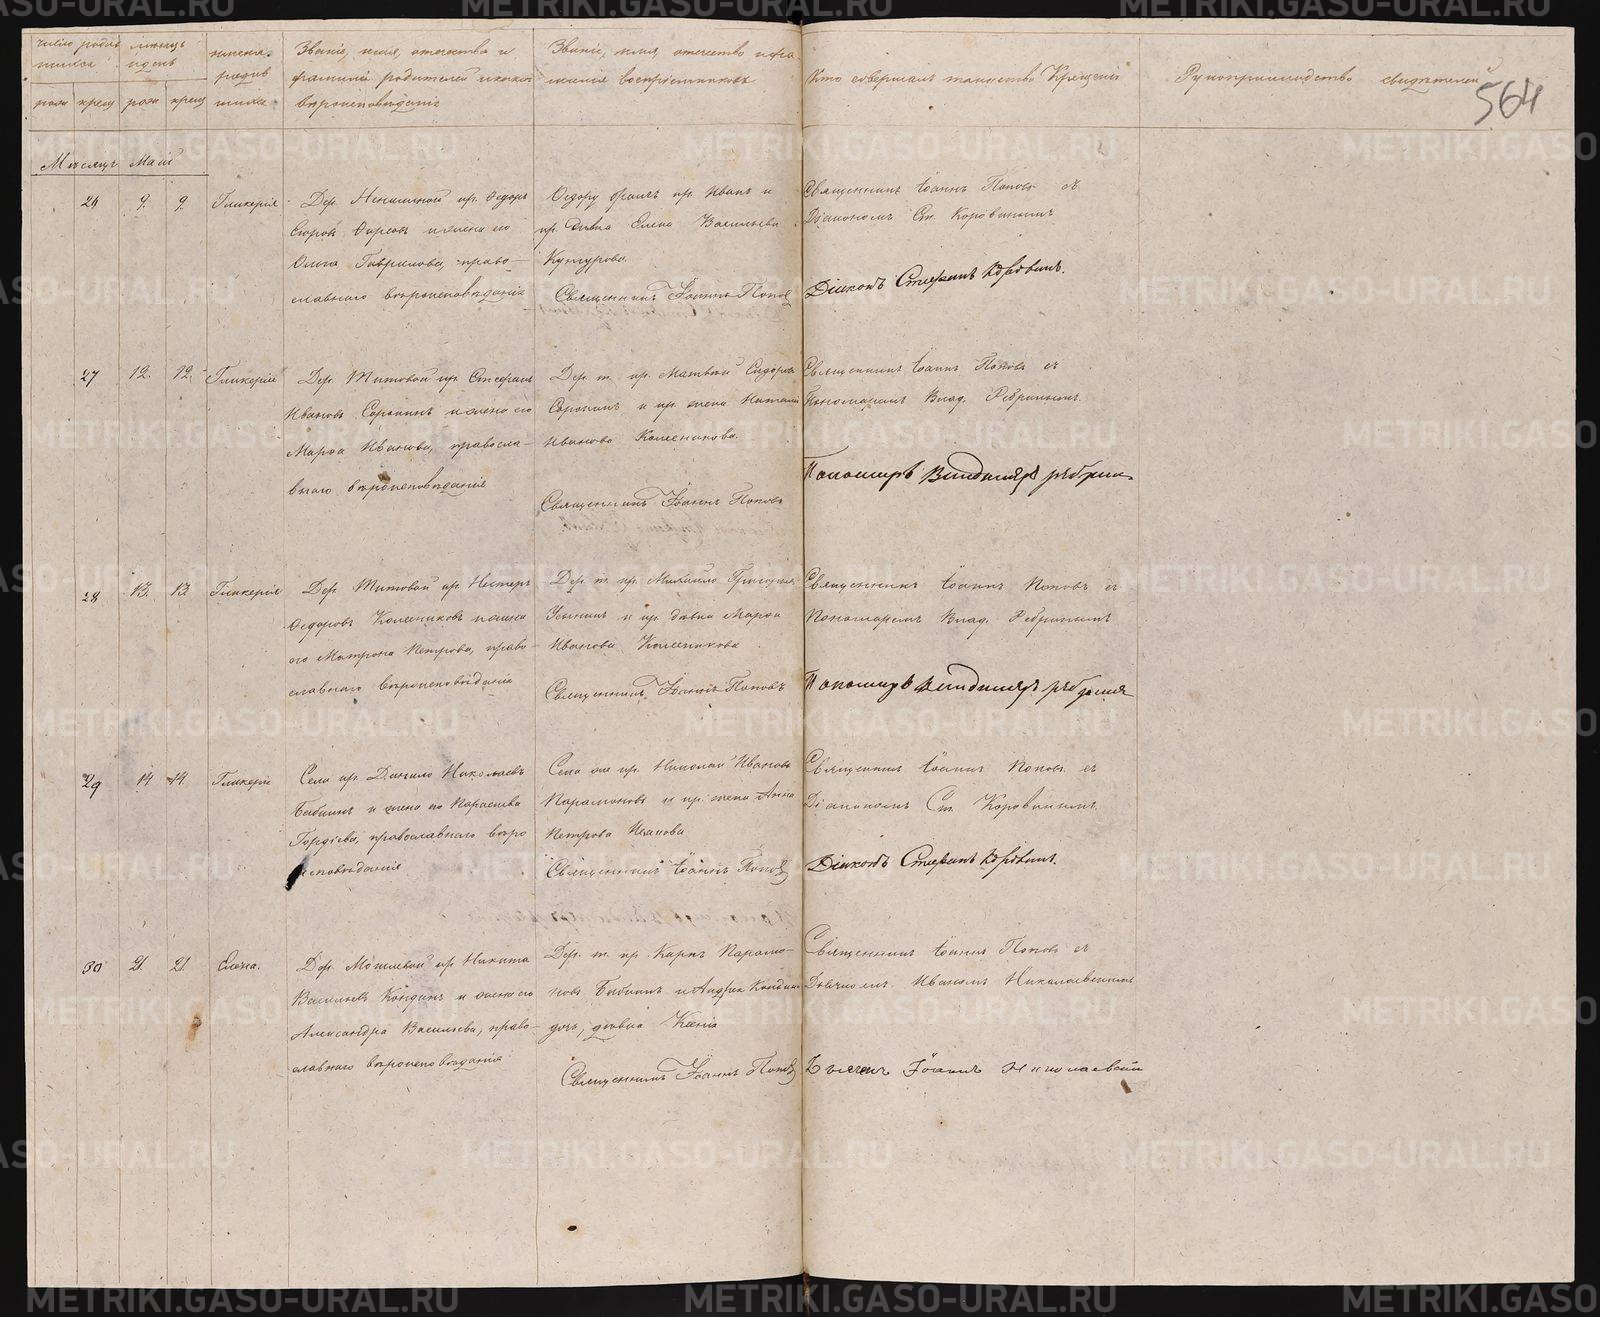 число родив мѣсяцъ
шихся и день
имена родив шихся
Званіе, имя, отчество и
фамилія родителей и какого
вѣроисповѣданія
Званіе, имя, отчество и фа
милія воспріемниковъ
Кто совершалъ таинство Крещенія
Рукоприкладство свидѣтелей
564
Мѣсяцъ Май
9. 9. Гликерія
Дер. кр. Ѳедоръ
и жена его
Ольга Гаврилова, право-
славнаго вѣроисповѣданія
кр. Иванъ и
кр. дѣвка Елена Васильева
Священникъ Іоаннъ Поповъ
Священникъ Іоаннъ Поповъ съ
Діакономъ Ст. Коровинымъ
Діаконъ Стефанъ Коровинъ.
27 12. 12. Гликерія
Дер. Титовой кр. Стефанъ
Ивановъ Сорокинъ и жена его
Марѳа Иванова, правосла-
внаго вѣроисповѣданія
Дер. т. кр. Матвѣй Сидоровъ
Сорокинъ и кр. жена Наталья
Иванова Колесникова.
Священникъ Іоаннъ Поповъ
Священникъ Іоаннъ Поповъ съ
Пономаремъ Влад. Ребринымъ.
Пономарь Владиміръ
28 13. 13 Гликерія
Дер. Титовой кр. Несторъ
Ѳедоровъ Колесниковъ и жена
его Матрона Петрова, право-
славнаго вѣроисповѣданія
Дер. т. кр. Михайло Григорьевъ
и кр. дѣвка Марѳа
Иванова Колесникова
Священникъ Іоаннъ Поповъ
Священникъ Іоаннъ Поповъ съ
Пономаремъ Влад. Ребринымъ
Пономарь Владиміръ
29 14 14. Гликерія
Села кр. Данило Николаевъ
Бабинъ и жена его Параскева
Гордѣева, православнаго вѣро
исповѣданія
Села же кр. Николай Ивановъ
Парамоновъ и кр. жена Анна
Петрова
Священникъ Іоаннъ Поповъ
Священникъ Іоаннъ Поповъ съ
Діакономъ Ст. Коровинымъ.
Діаконъ Стефанъ Коровинъ.
30 21. 21. Елена.
Дер. кр. Никита
Васильевъ Кондинъ и жена его
Александра Васильева, право-
славнаго вѣроисповѣданія
Дер. т. кр. Карпъ Парамо-
новъ Бабинъ и Андрея Кондина
дочь, дѣвка Ксенія
Священникъ Іоаннъ Поповъ
Священникъ Іоаннъ Поповъ съ
Дьячкомъ Иваномъ Николаевскимъ
Дьячекъ Іоаннъ Николаевскій
METRIKI.GASO-URAL.RU